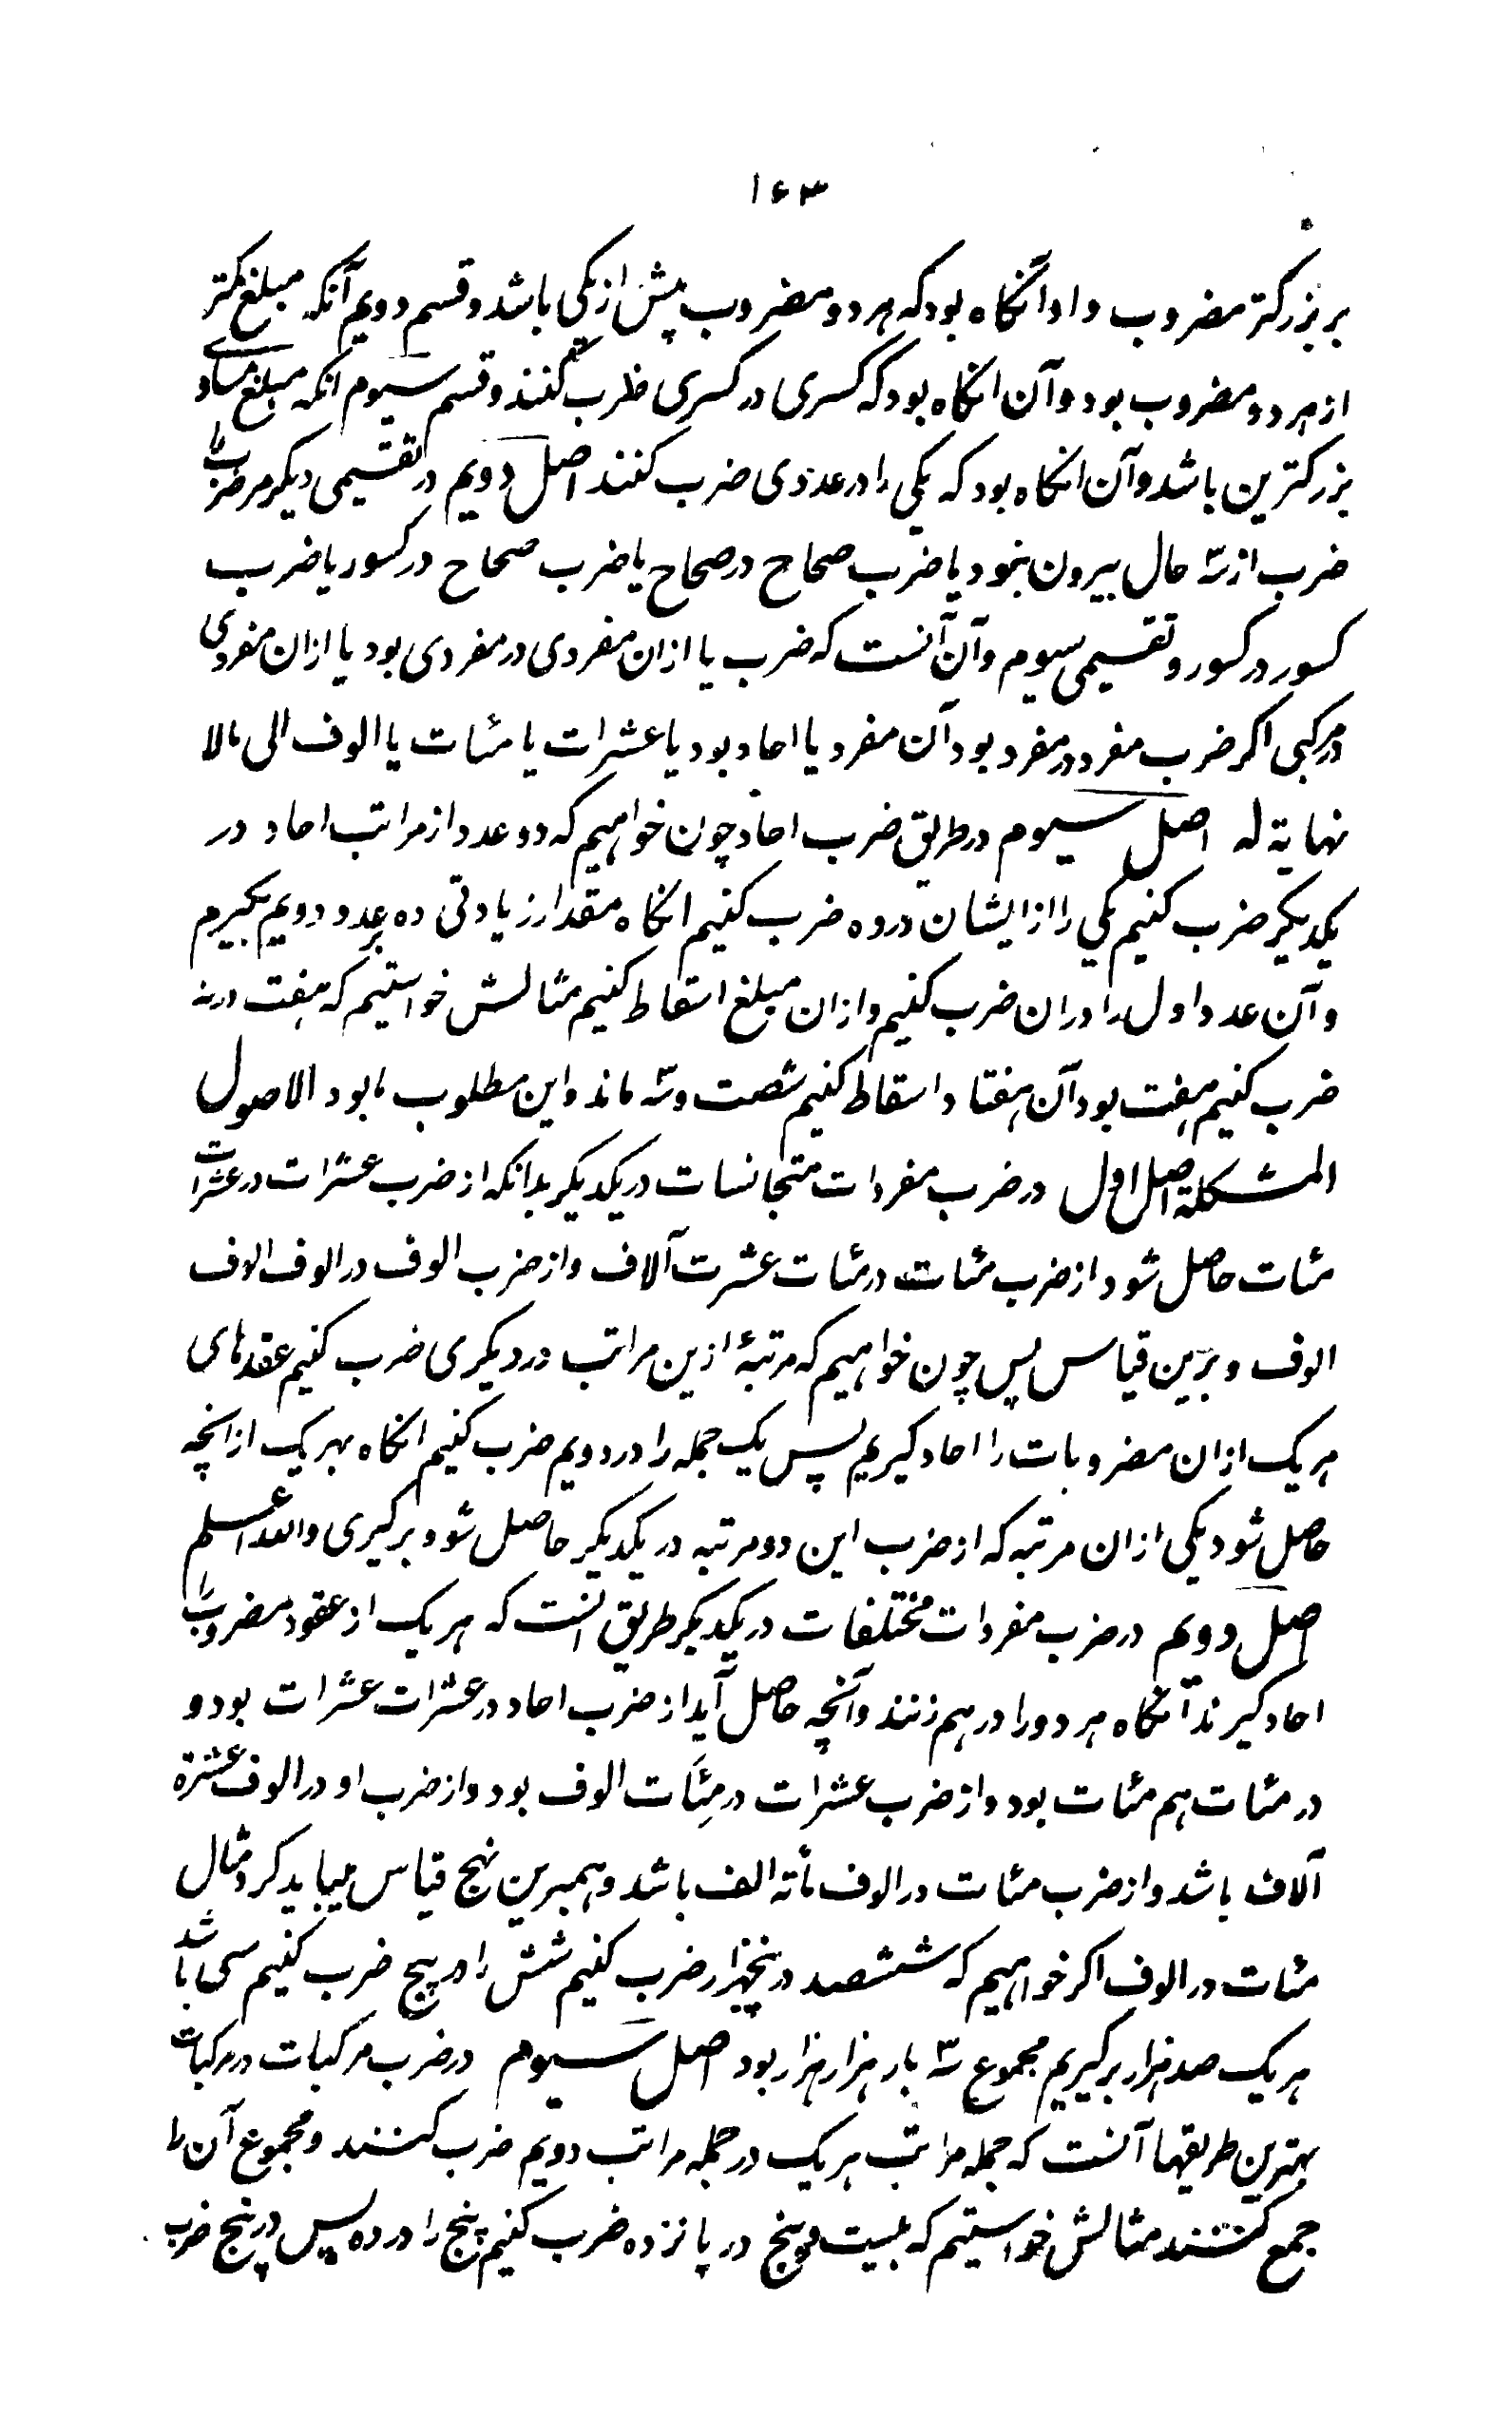 ۱۶۳
بر بزرکتر مضروب و او انگاه بود که هر دو مضروب بیش از یکی باشد و قسم دویم آنکه مبلغ کمتر
از هر دو مضروب بود و آن انکاه بود که کسری در کسری ضرب کنند و قسم سیوم انکه مبلغ مساوی
بزرکترین باشد و آن انکاه بود که یکی را در عددی ضرب کنند اصل دویم در تقسیمی دیکر مر ضرب را
ضرب از سه حال بیرون نبود یا ضرب صحاح در صحاح یا ضرب صحاح در کسور یا ضرب
کسور در کسور و تقسیمی سیوم و آن آنست که ضرب یا ازان مفردی در مفردی بود یا ازان مفردی
در مرکبی اکر ضرب مفرد در مفرد بود آن مفرد یا احاد بود یا عشرات یا مئات یا الوف الی مالا
نهایة له اصل سیوم در طریق ضرب احاد چون خواهیم که دو عدد از مراتب احاد در
یکدیکر ضرب کنیم یکی را از ایشان در ده ضرب کنیم انکاه مقدار زیادتی ده بر عدد دویم بکیرم
و آن عدد اول را دران ضرب کنیم و ازان مبلغ اسقاط کنیم مثالش خواستیم که هفت در نه
ضرب کنیم هفت بود آن هفتاد اسقاط کنیم شصت و سه ماند و این مطلوب ما بود الاصول
المشکلة اصل اول در ضرب مفردات متجانسات در یکدیکر بدانکه از ضرب عشرات در عشرات
مئات حاصل شود از ضرب مئات در مئات عشرت آلاف و از ضرب الوف در الوف الوف
الوف و برین قیاس پس چون خواهیم که مرتبهٔ ازین مراتب در دیکری ضرب کنیم عقدهای
هر یک ازان مضروبات را احاد کیریم پس یک جمله را در دویم ضرب کنیم انکاه بهر یک ازانچه
حاصل شود یکی ازان مرتبه که از ضرب این دو مرتبه در یکدیکر حاصل شود بر کیری والله اعلم
اصل دویم در ضرب مفردات مختلفات در یکدیکر طریق انست که هر یک از عقود مضروب را
احاد کیرند آنگاه هر دو را در هم زنند و آنچه حاصل آید از ضرب احاد در عشرات عشرات بود و
در مئات هم مئات بود و از ضرب عشرات در مئات الوف بود و از ضرب او در الوف عشرة
آلاف باشد و از ضرب مئات در الوف مأته الف باشد و همبرین نهج قیاس میباید کرد مثال
مئات در الوف اکر خواهیم که ششصد در پنجهزار ضرب کنیم شش را در پنج ضرب کنیم سی باشد
هر یک صد هزار بر کیریم مجموع سه بار هزار هزار بود اصل سیوم در ضرب مرکبات در مرکبات
بهترین طریقها آنست که جمله مراتب هر یک در جمله مراتب دویم ضرب کنند و مجموع آن را
جمع کنند مثالش خواستیم که بیست و پنج در پانزده ضرب کنیم پنج را در ده پس در پنج ضرب